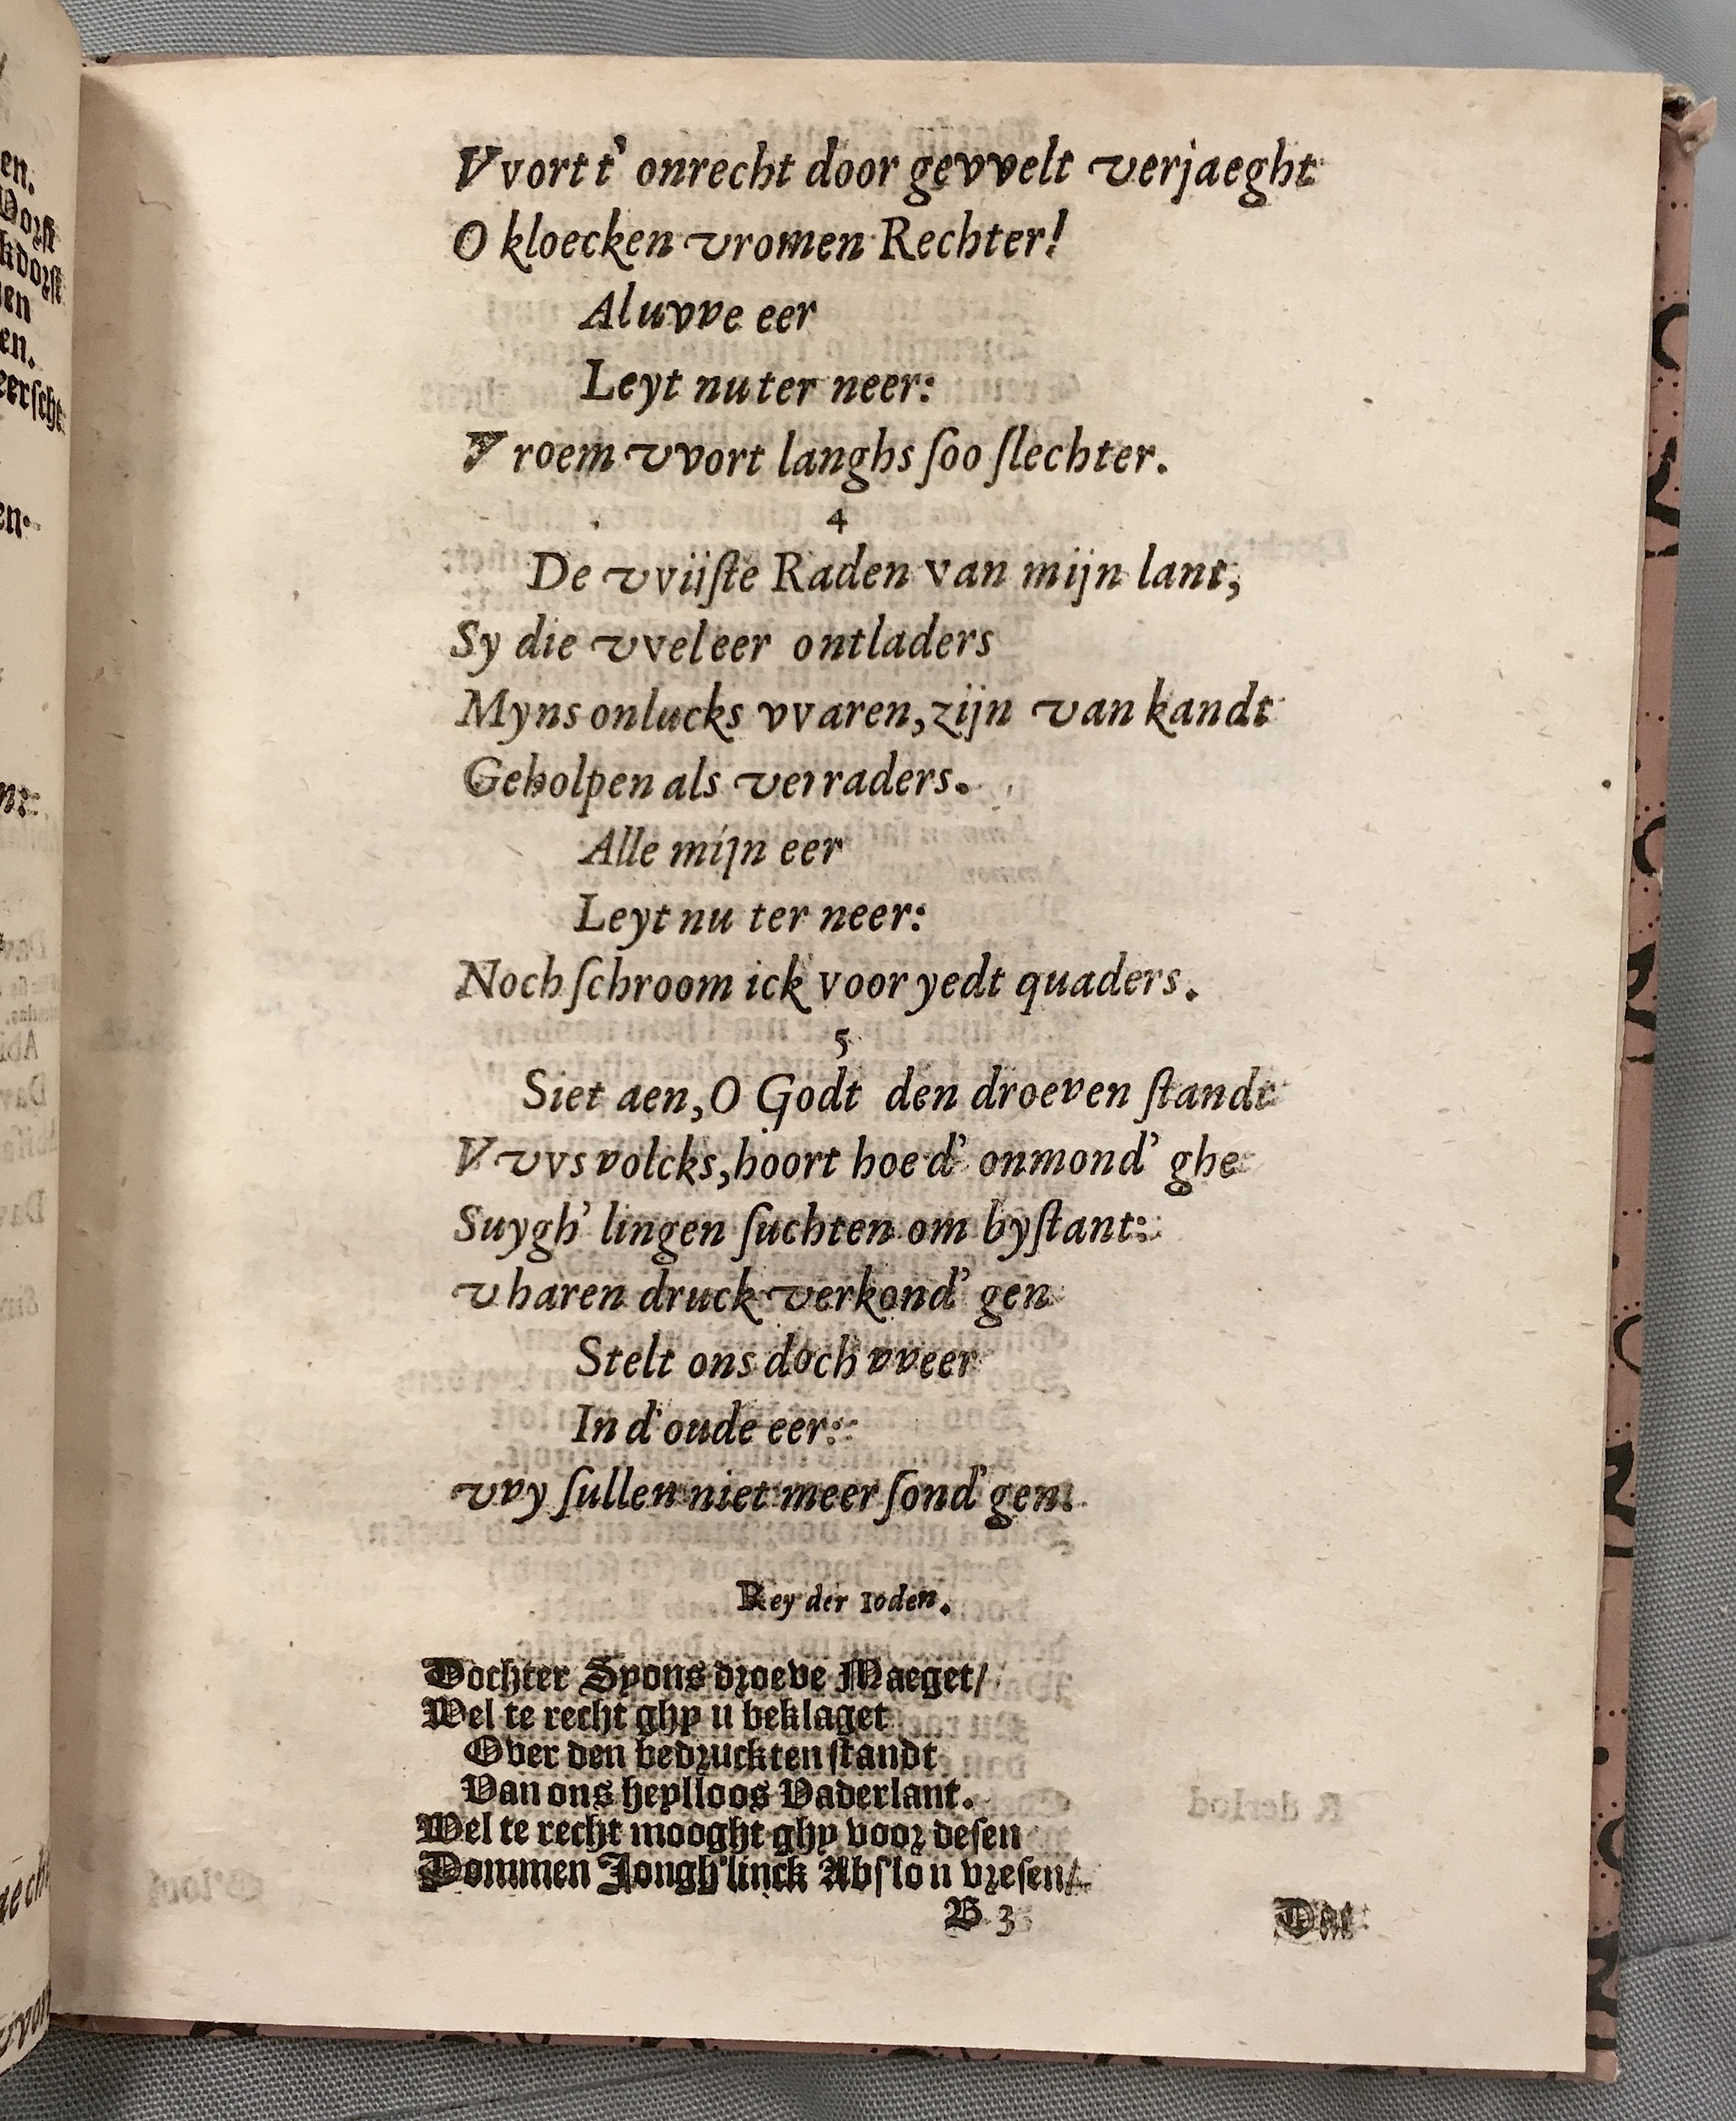 Vvort t' onrecht door gevvelt verjaeght
O kloecken vromen Rechter!
Al uvve eer
Leyt nu ter neer:
V roem vvort langhs ſoo ſlechter.
4
De vviiſte Raden van mijn lant,
Sy die vveleer ontladers
Myns onlucks vvaren, zijn van kandt
Geholpen als verraders.
Alle mijn eer
Leyt nu ter neer:
Noch ſchroom ick voor yedt quaders.
5
Siet aen, O Godt den droeven ſtandt
Vvvs volcks, hoort hoe d' onmond' ghe
Suygh' lingen ſuchten om byſtant:
v haren druck verkond' gen
Stelt ons doch vveer
In d' oude eer:
vvy ſullen niet meer ſond' gen.
Rey der Ioden.
Dochter Syons droeve Maeget/
Wel te recht ghy u beklaget
Over den bedruckten ſtandt
Van ons heylloos Vaderlant.
Wel te recht mooght ghy voor deſen
Dommen Jongh'linck Abſ'lon vreſen/
B 3
Dat